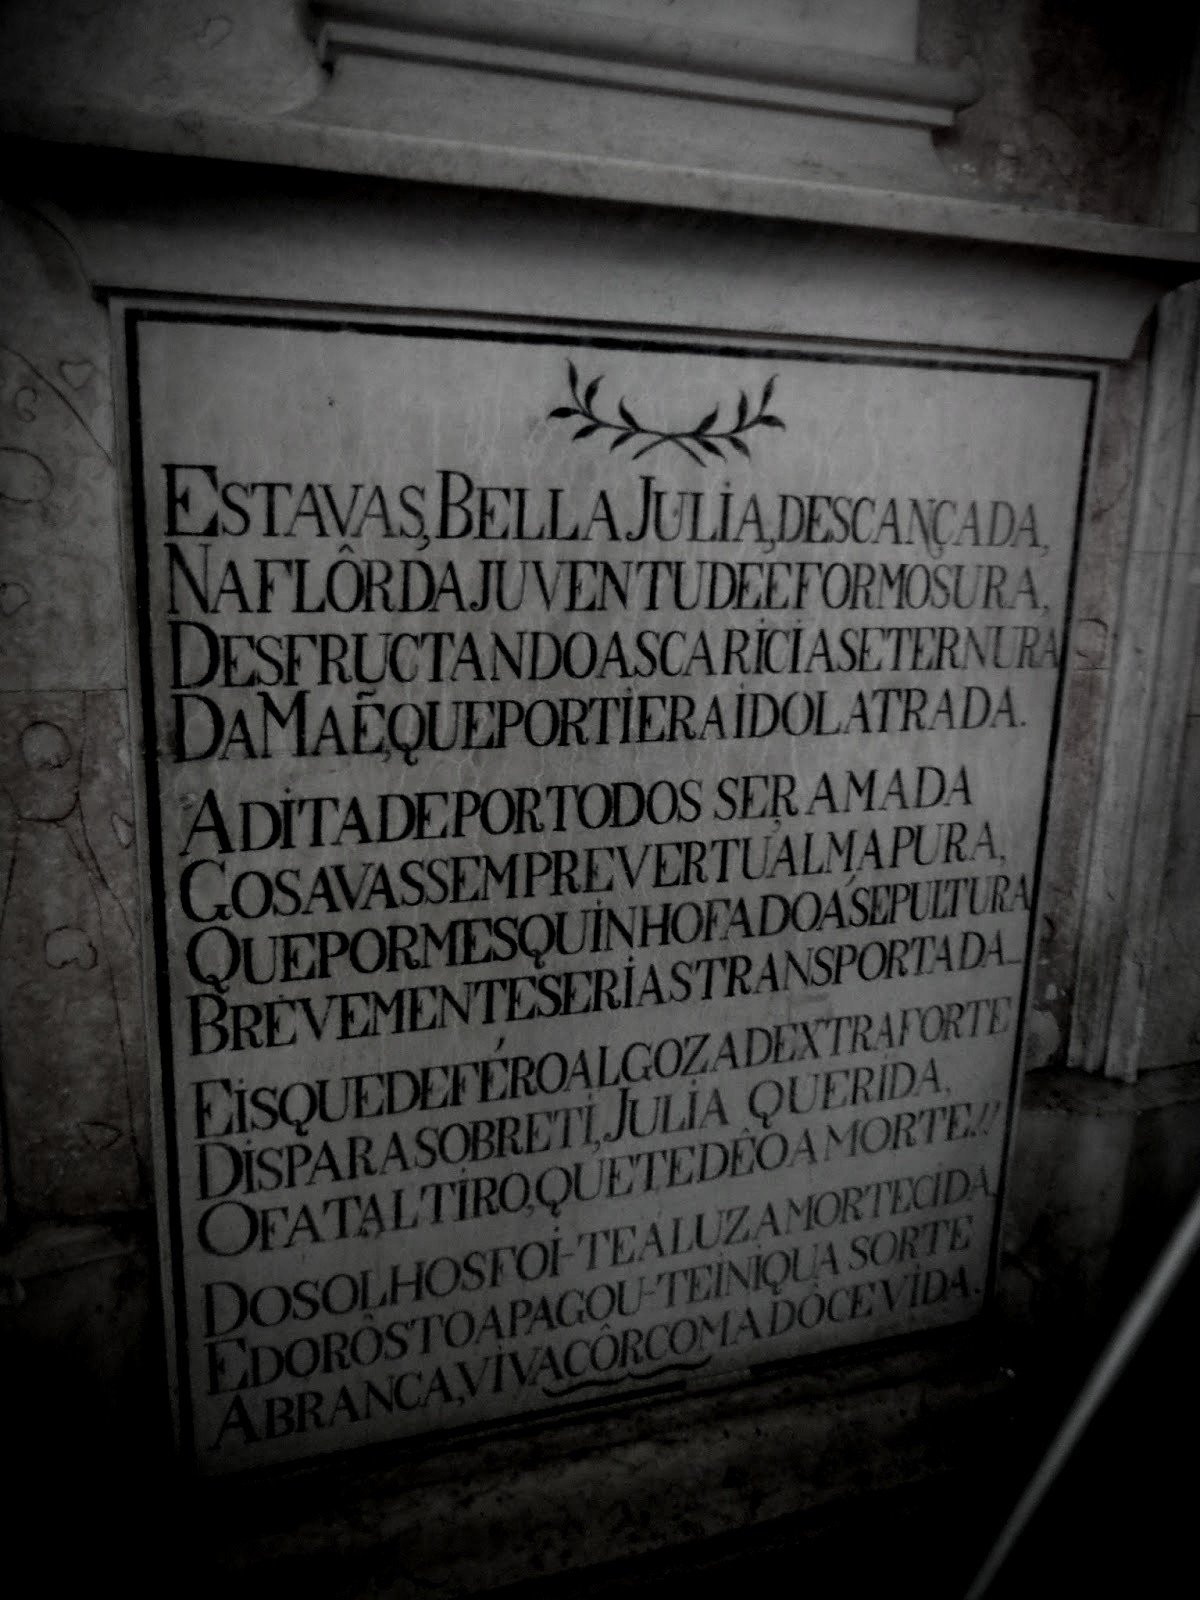 ESTAVAS, BELLA JULIA, DESCANÇADA,
NA FLÔR DA JUVENTUDE E FORMOSURA,
DESFRUCTANDO AS CARICIAS E TERNURA
DA MAẼ, QUE POR TI ERA IDOLATRADA.
A DITA DE POR TODOS SER AMADA
GOSAVAS SEMPRE VERTUALMA PURA,
QUE POR MESQUINHO FADO Á SEPULTURA
BREVEMENTE SERIAS TRANSPORTADA...
EIS QUE DE FÉRO ALGOZ A DEXTRA FORTE
DISPARA SOBRE TI, JULIA QUERIDA,
O FATAL TIRO, QUE TE DÊO A MORTE!!!
DOS OLHOS FOI-TE A LUZ AMORTECIDA,
E DO RÔSTO APAGOU-TE INIQUA SORTE
A BRANCA, VIVA CÔR COM A DÔCE VIDA.